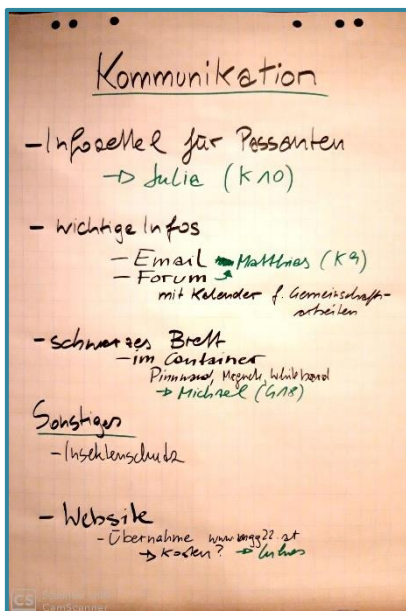 Kommunikation
- Infozettel für Passanten
→ Julia (K10)
- wichtige Infos
- Email Matthias (K9)
- Forum
mit Kalender f. Gemeinschafts-
arbeiten
- schwarzes Brett
- im Container
Pinnwand, Magnete, Whiteboard
→ Michael (G18)
Sonstiges
- Insektenschutz
- Website
- Übernahme
→ Kosten? →
CS
CamScanner